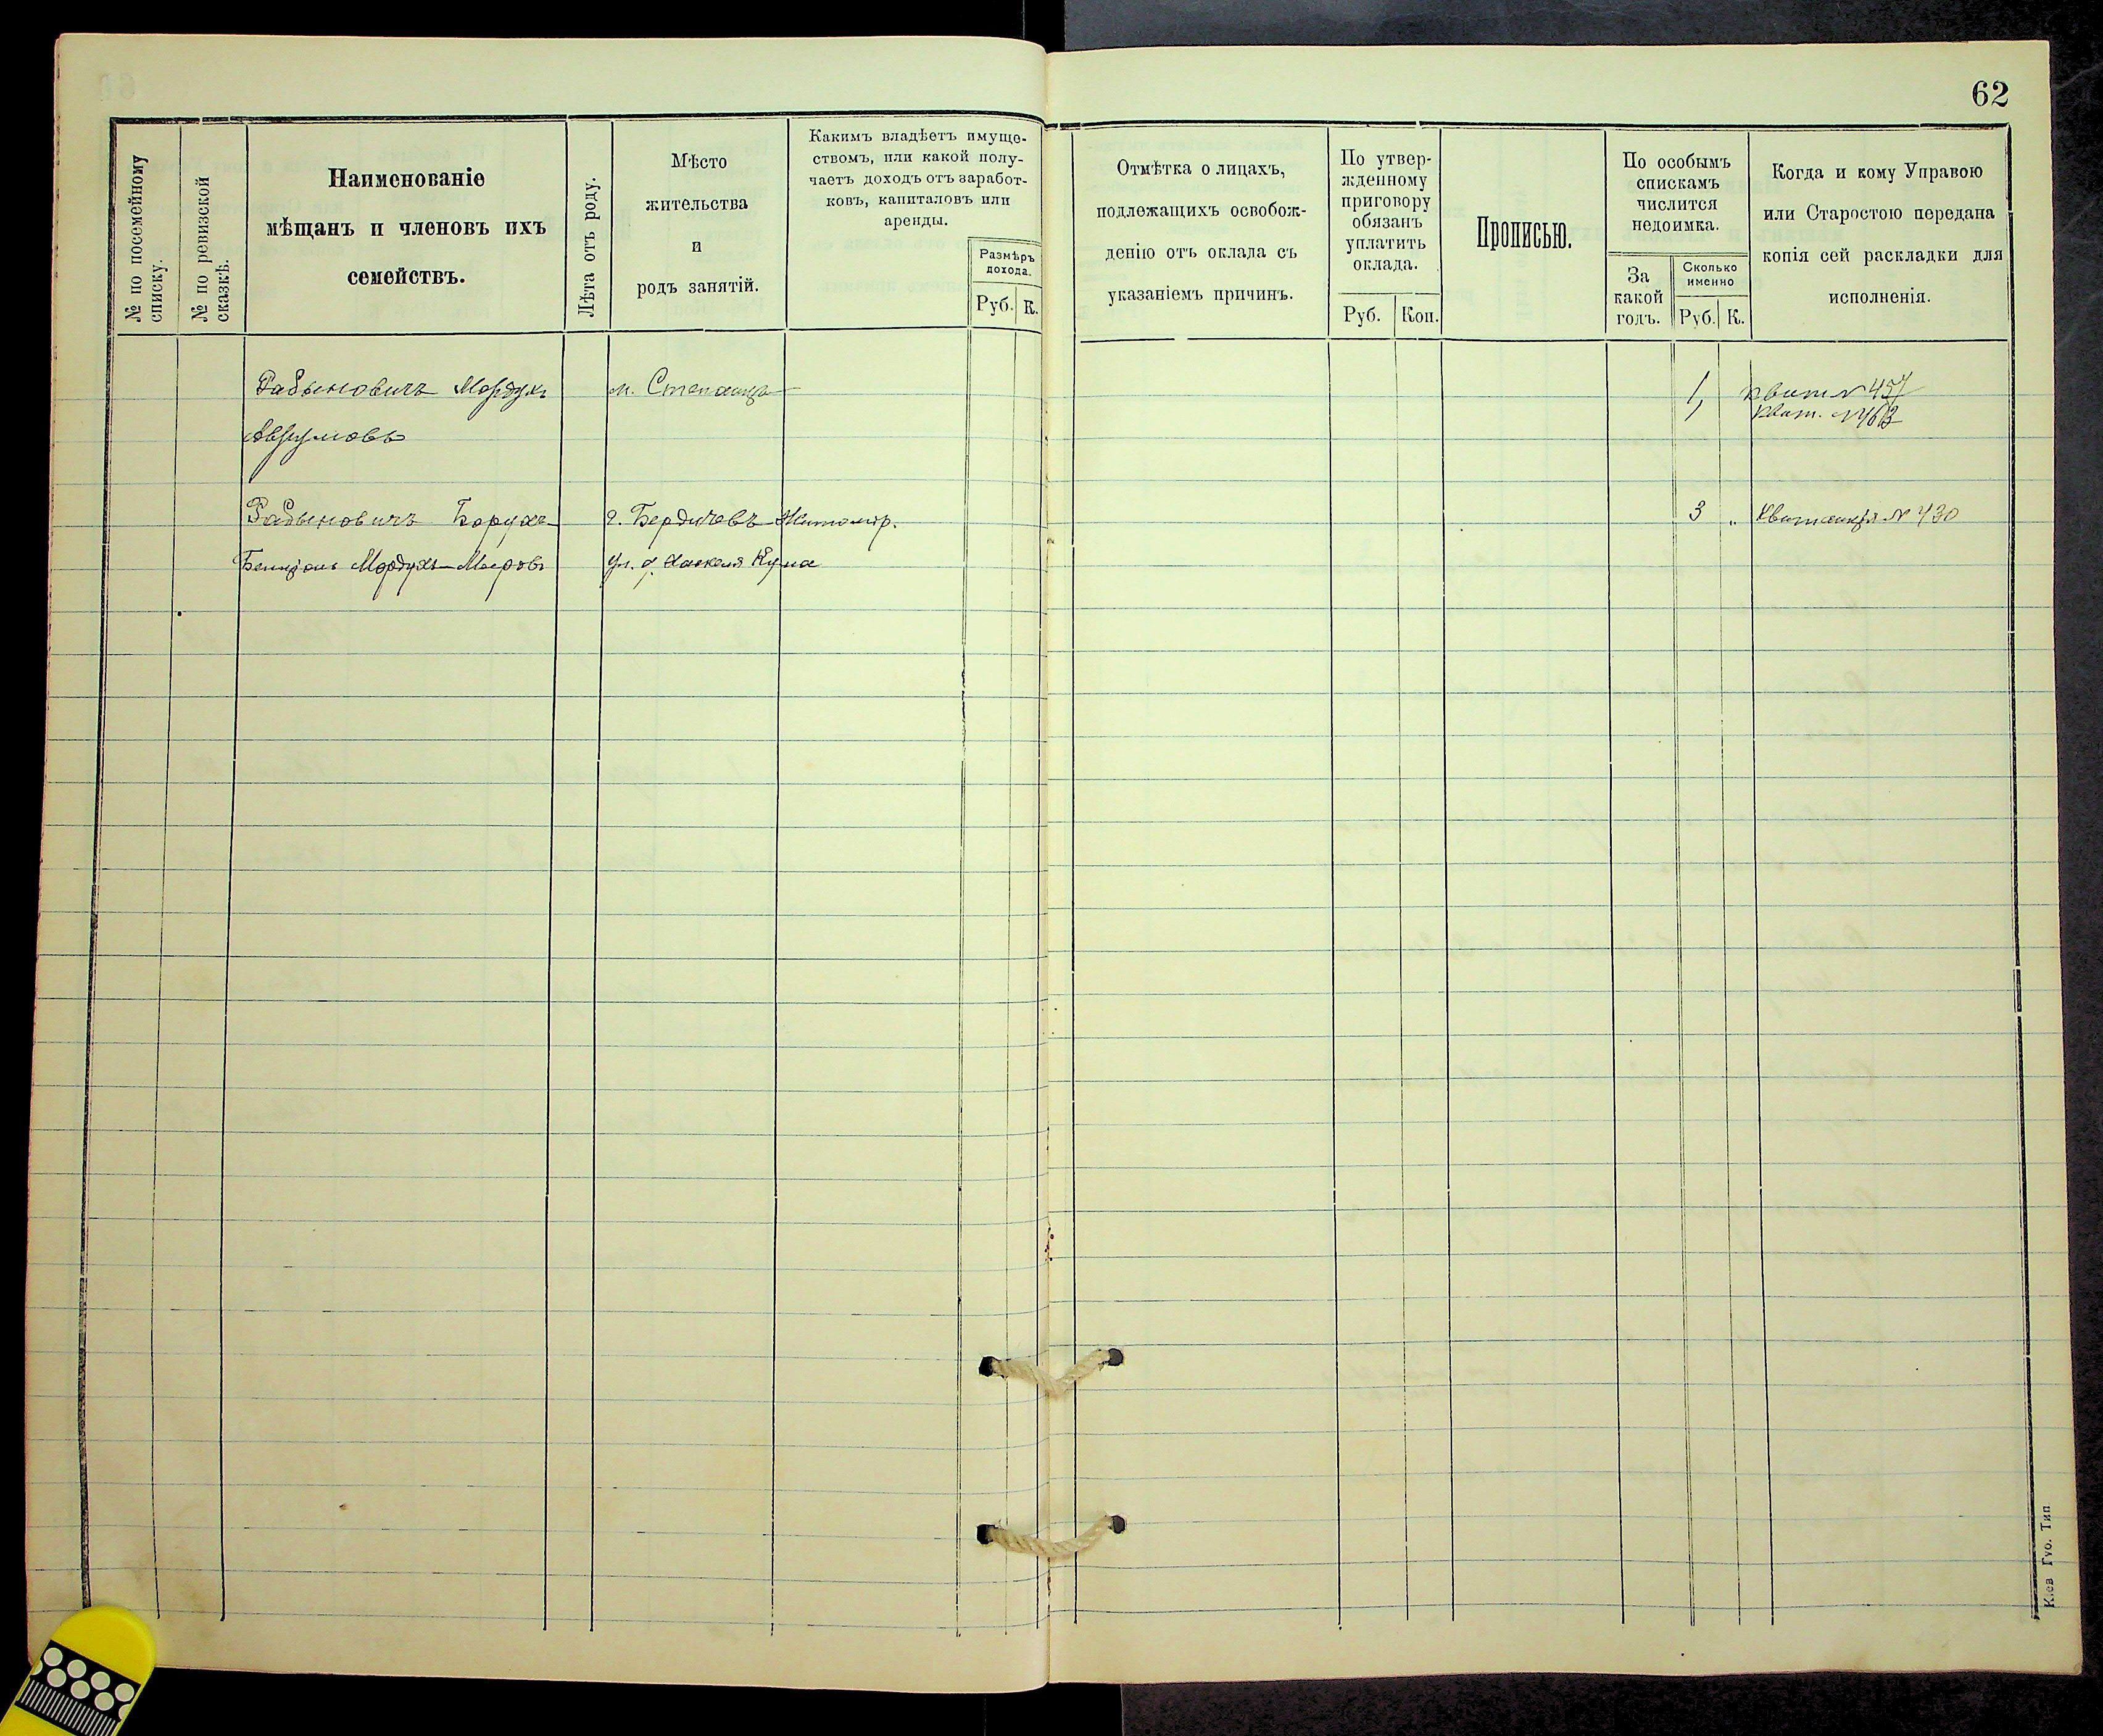 62
№ по посемейному
списку.
№ по ревизской
сказкѣ.
Наименованіе
мѣщанъ и членовъ ихъ
семействъ.
Лѣта отъ роду.
Мѣсто
жительства
и
родъ занятій.
Какимъ владѣетъ имуще-
ствомъ, или какой полу-
чаетъ доходъ отъ заработ-
ковъ, капиталовъ или
аренды.
Размѣръ
дохода.
Руб. К.
Отмѣтка о лицахъ,
подлежащихъ освобож-
денію отъ оклада съ
указаніемъ причинъ.
По утвер-
жденному
приговору
обязанъ
уплатить
оклада.
Руб. Коп.
Прописью.
По особымъ
спискамъ
числится
недоимка.
За
какой
годъ.
Сколько
именно
Руб. К.
Когда и кому Управою
или Старостою передана
копія сей раскладки для
исполненія.
Рабыновичъ Мордухъ м. Степанцы 1, Квит № 457
Аврумовъ 1, Квит. № 463
Рабыновичъ Борухъ- г. Бердичевъ Житомір. 3 „ Квитанція № 430
Бенціонъ Мордухъ-Мееровъ ул. д. Хаскеля Куна
Кіев Губ. Тип